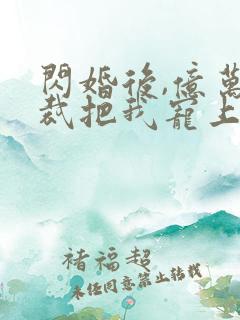 閃婚後,億萬
裁把我寵上
褚福超
未任同意禁止转载